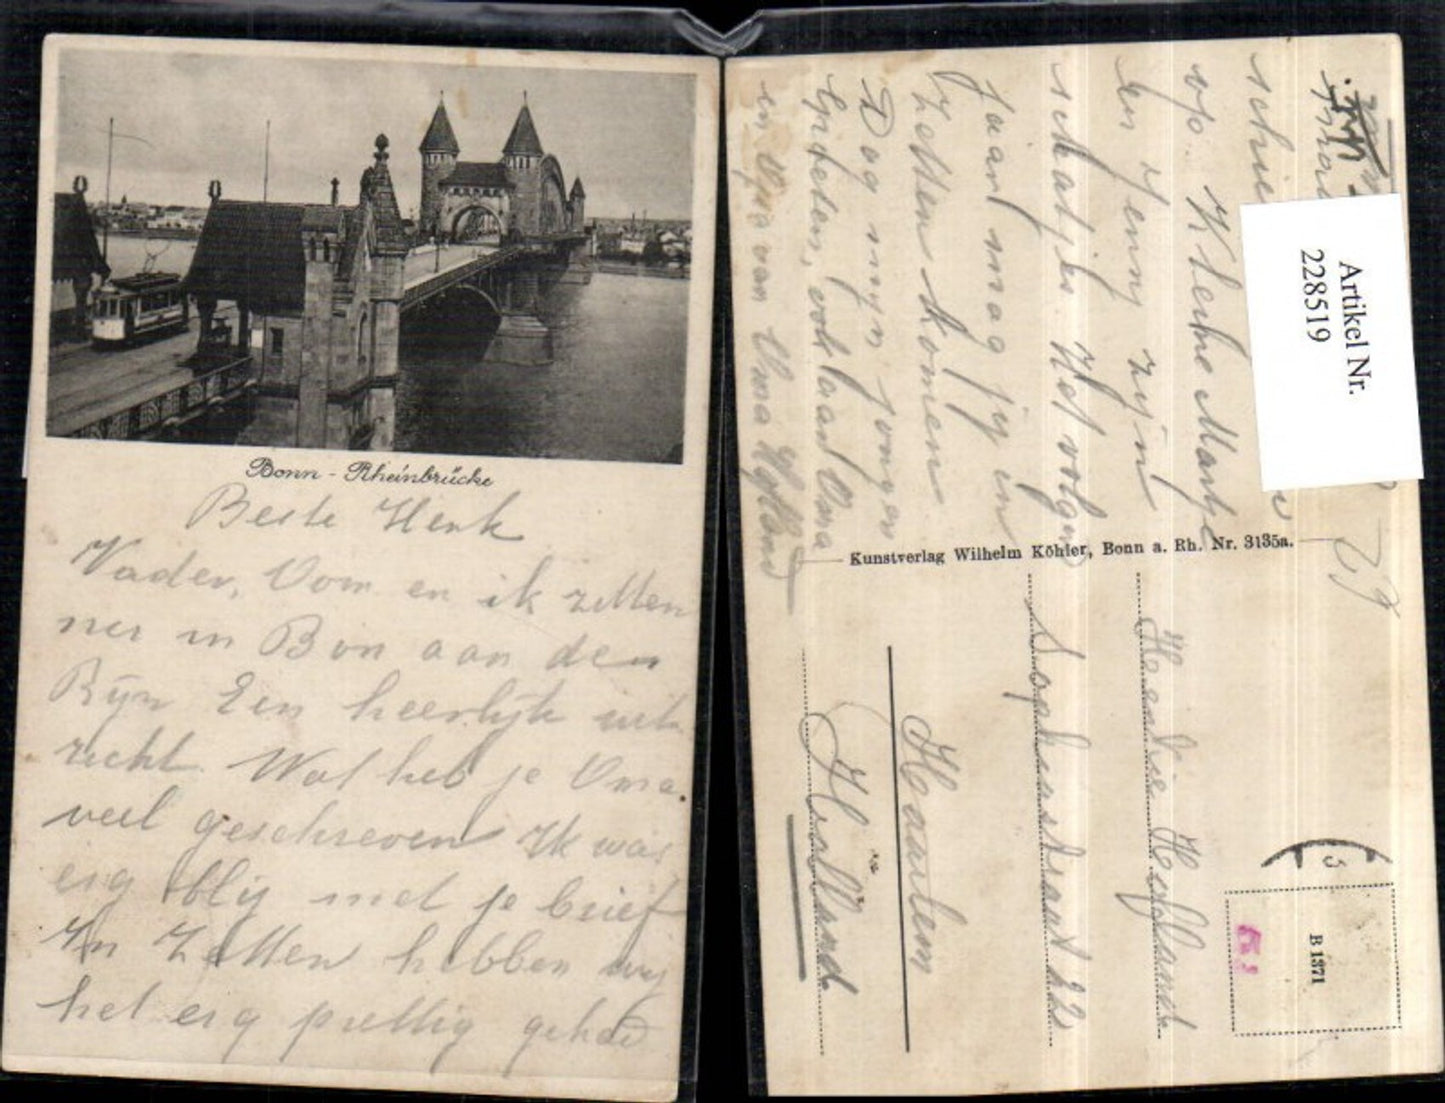 Bonn - Rheinbrücke
Beste Henk
Vader, Oom en ik zitten
nu in Bon aan den
Rijn Een heerlijk uit
zicht. Wat heb je Oma
veel geschreven Ik was
erg blij met je brief
In Zetten hebben wij
het erg prettig gehad
schie
op. Kleine Martje
en Jenny zijn
schatjes Het volgend
jaar mag jij in
Zetten komen
Dag mijn jongen
Grpeten, ook aan Oma
en Opa van Oma Hofland
Artikel Nr.
228519
Kunstverlag Wilhelm Köhler, Bonn a. Rh. Nr. 3135a.
B 1371
Hendrie Hofland
Sophiastraat 22
Haarlem
Holland